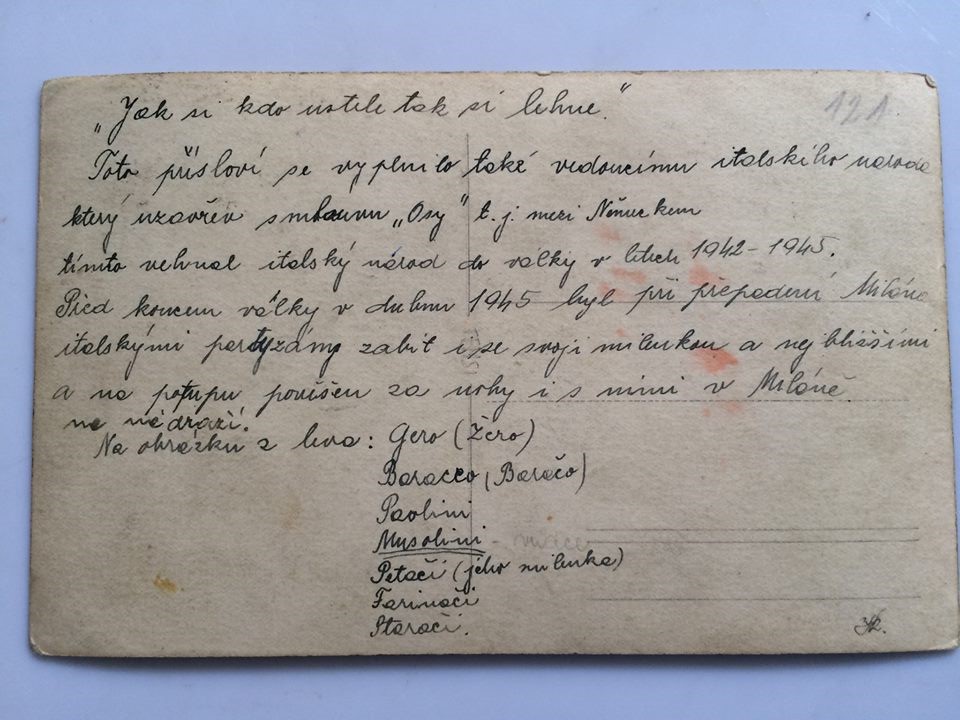 „Jak si kdo ustele tak si lehne."
121
Toto přísloví se vyplnilo také vedoucímu italského národa
který uzavřev smlouvu „Osy" t. j. mezi Německem
tímto vehnal italský národ do války v letech 1942-1945.
Před koncem války v dubnu 1945 byl při přepadení Milána
italskými partyzány zabit i se svoji milenkou a nejbližšími
a na potupu pověšen za nohy i s nimi v Miláně
na nádraží.
Na obrázku z leva: Gero (Žéro)
Baracco (Baračo)
Paolini
Musolini -
Petači (jeho milenka)
Farinači
Starači.